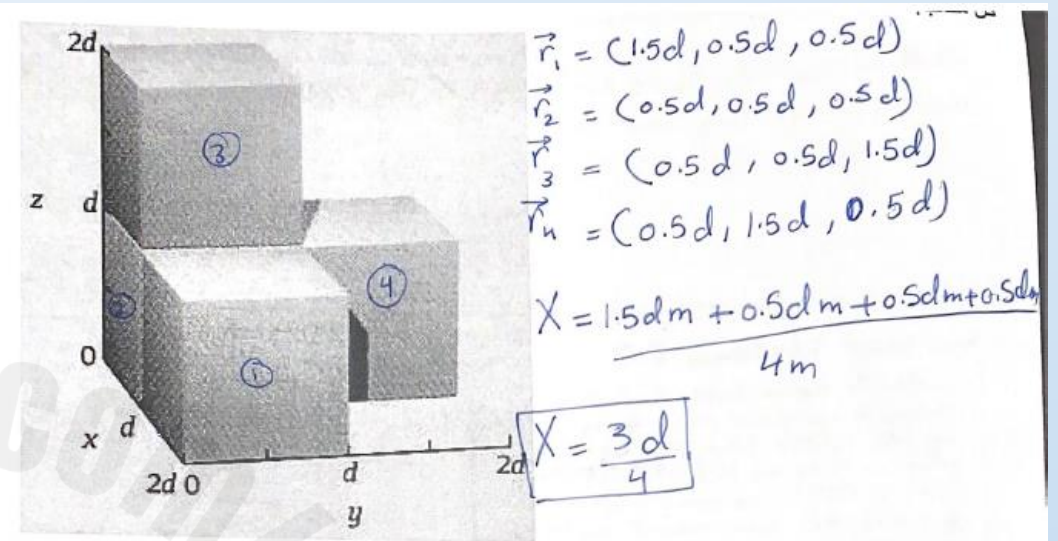 2d
z
d
0
x
d
2d 0
d
2d
y
③
②
④
①
r⃗₁ = (1.5d, 0.5d, 0.5d)
r⃗₂ = (0.5d, 0.5d, 0.5d)
r⃗₃ = (0.5d, 0.5d, 1.5d)
r⃗₄ = (0.5d, 1.5d, 0.5d)
X = 1.5dm + 0.5dm + 0.5dm + 0.5dm
4m
X = 3d
4